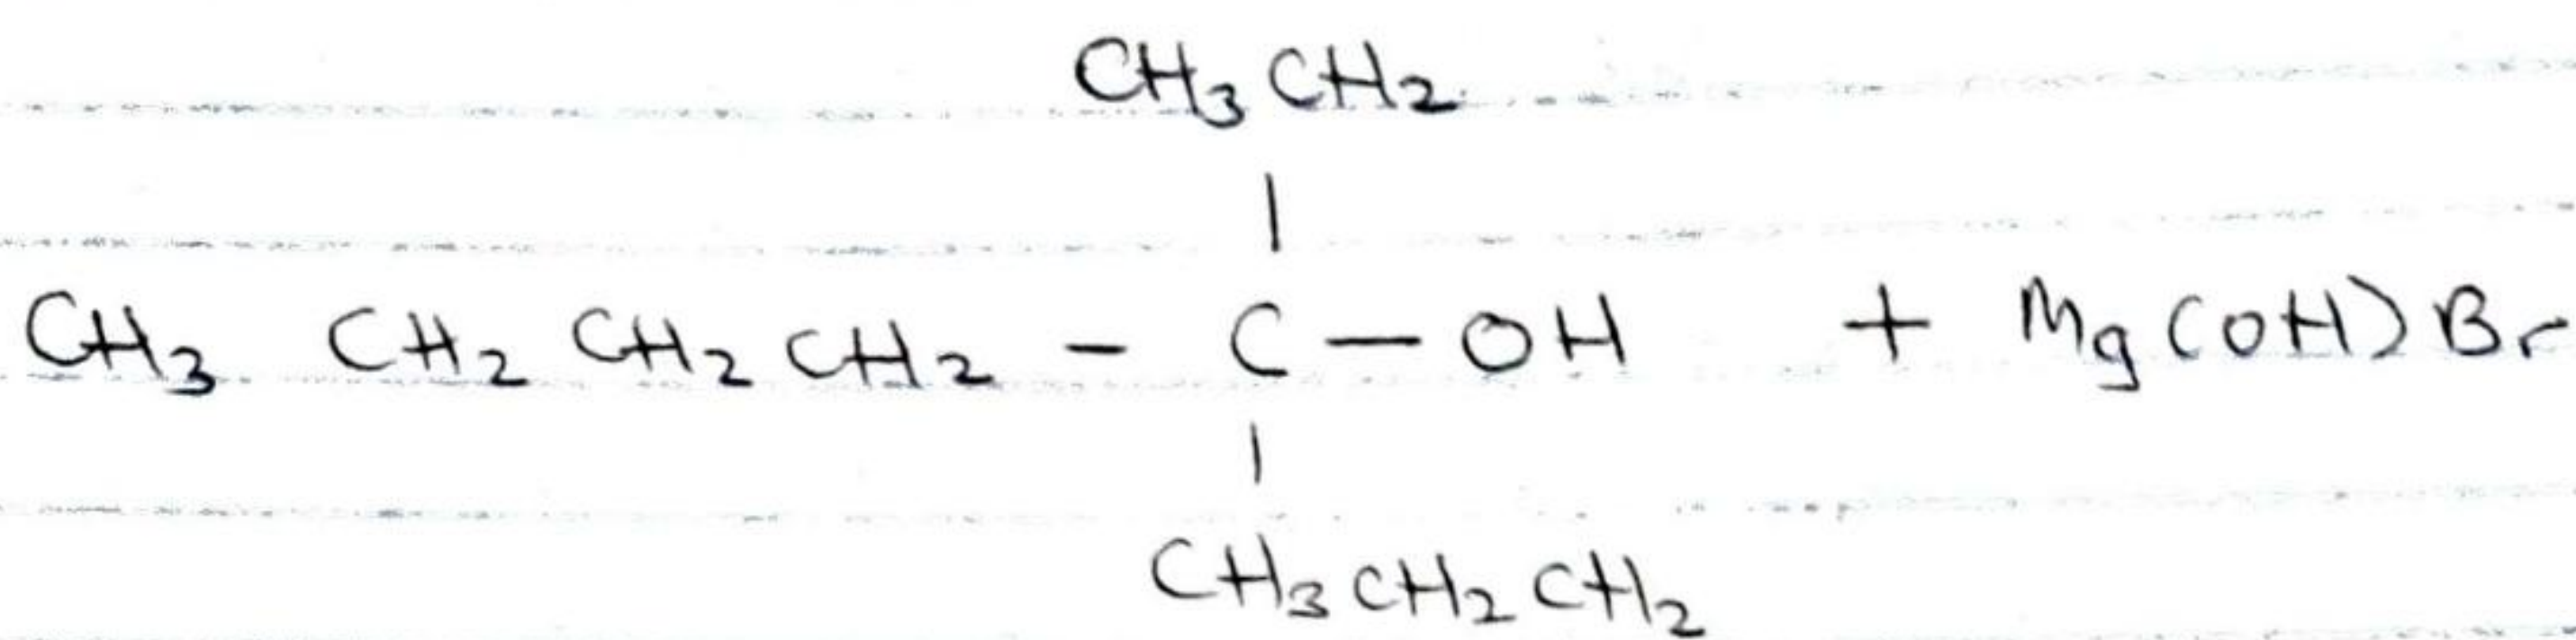 CH3 CH2
|
CH3 CH2 CH2 CH2 - C - OH + Mg(OH)Br
|
CH3 CH2 CH2